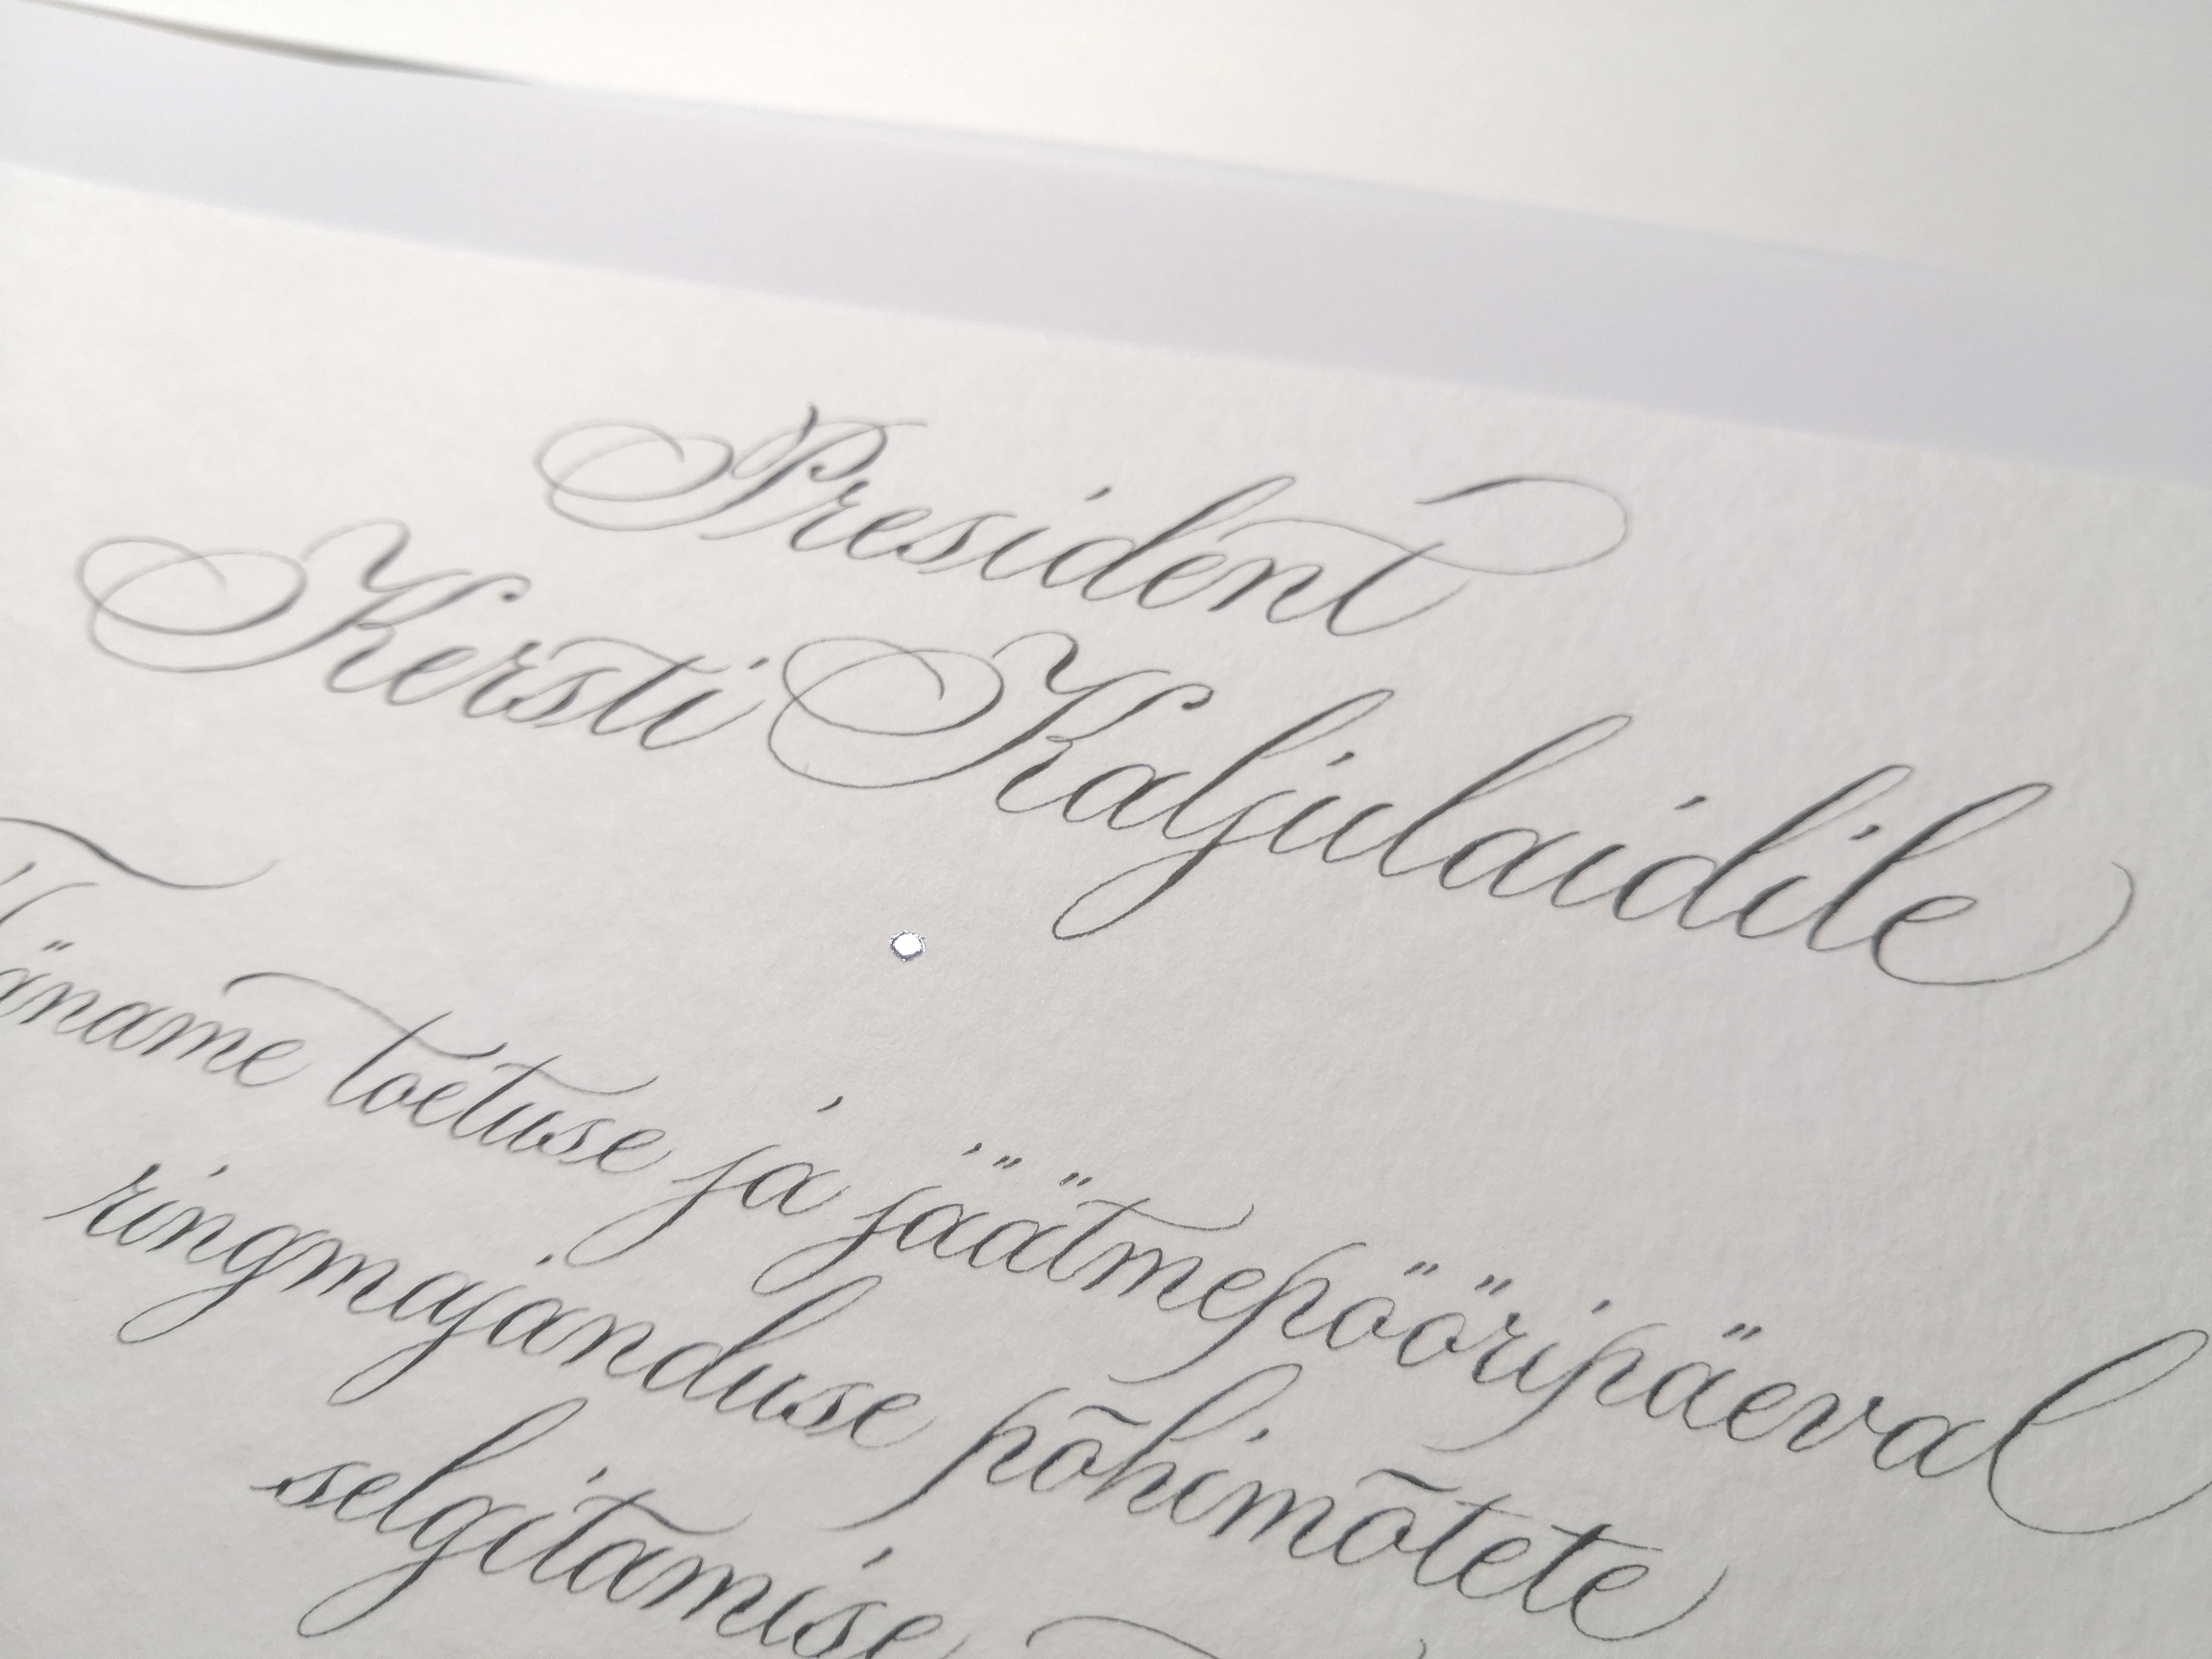 President
Kersti Kaljulaidile
Täname toetuse ja jäätmepööripäeval
ringmajanduse põhimõtete
selgitamise